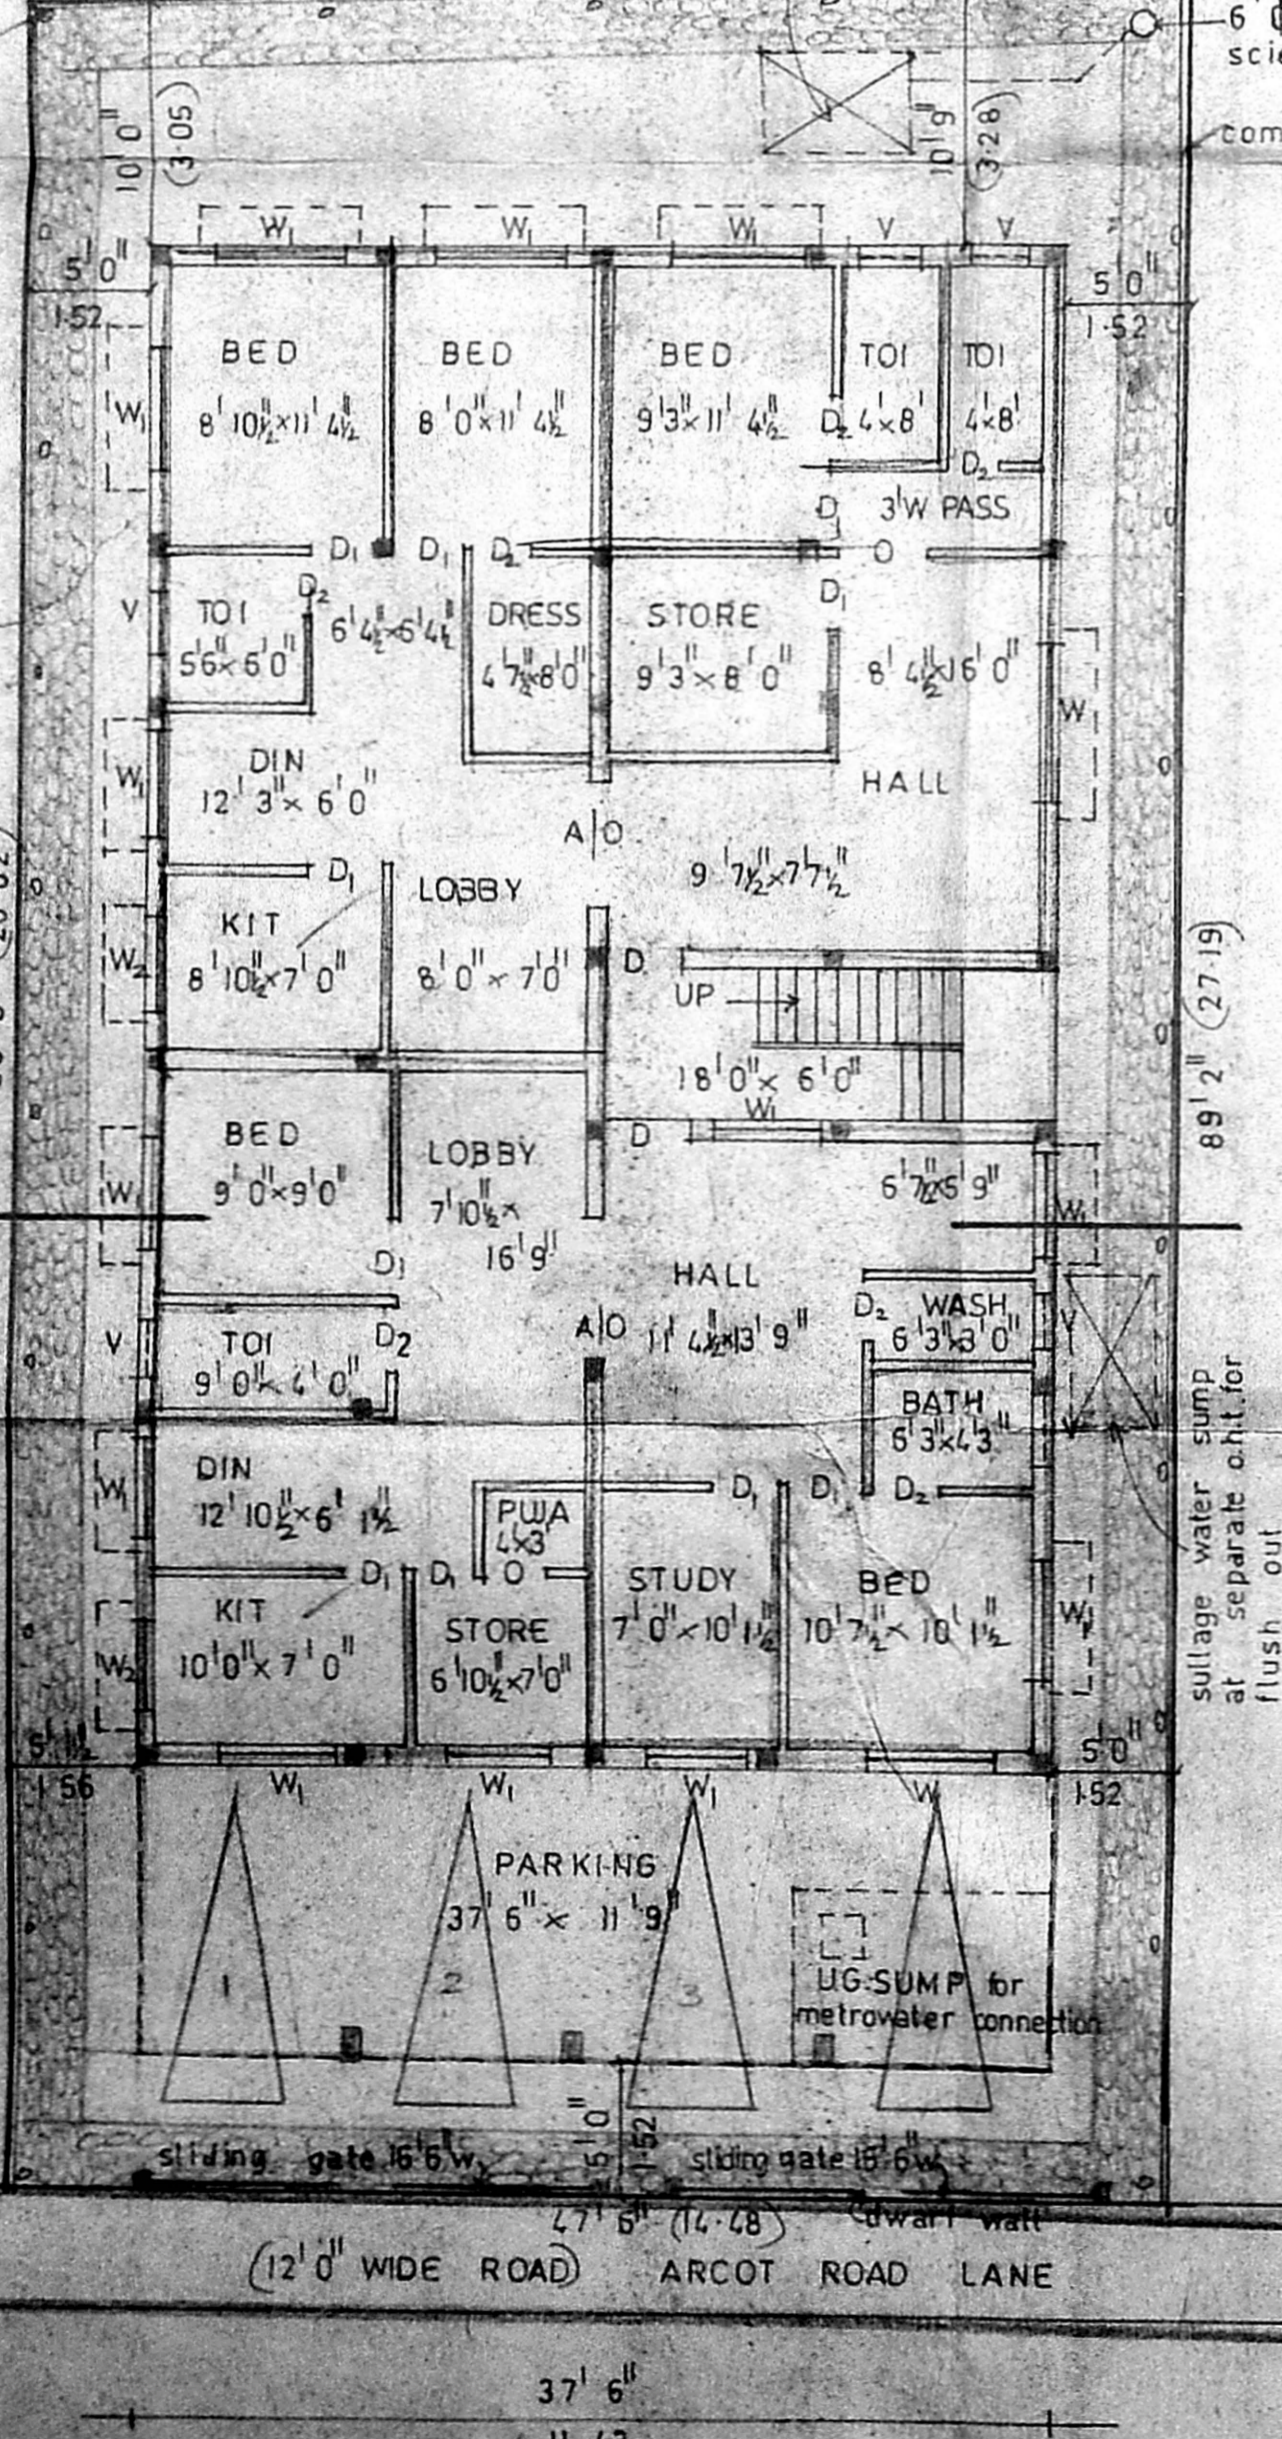 6
scie
10' 0"
(3·05)
10' 9"
(3·28)
com
W1
W1
W1
V
V
5' 0"
1·52
5' 0"
1·52
BED
8' 10½"×11' 4½"
BED
8' 0"×11' 4½"
BED
9' 3"×11' 4½"
TOI
4'×8'
TOI
4'×8'
W1
D2
D2
D1
3'W PASS
D1
D1
D2
O
V
TOI
5'6"×6'0"
D2
6' 4½"×6' 4½"
DRESS
4' 7½"×8'0"
STORE
9' 3"×8' 0"
D1
8' 4½"×16' 0"
W
W1
DIN
12' 3"× 6' 0"
HALL
A/O
9' 7½"×7' 7½"
D1
LOBBY
8' 0"× 7' 0"
KIT
8' 10½"×7' 0"
W2
D
UP
18' 0"× 6' 0"
W1
89' 2" (27·19)
BED
9' 0"×9' 0"
W1
LOBBY
7' 10½"×
16' 9"
D
6' 7½"×5' 9"
W1
D1
HALL
11' 4½"×13' 9"
A/O
V
TOI
9' 0"× 4' 0"
D2
D2
WASH
6' 3"×3' 0"
V
BATH
6' 3"×4' 3"
sullage water sump
at separate o.h.t. for
flush out
DIN
12' 10½"×6' 1½"
W1
PUJA
4'×3'
D1
D1
D2
D1
D1
O
KIT
10' 0"× 7' 0"
W2
STORE
6' 10½"×7' 0"
STUDY
7' 0"×10' 1½"
BED
10' 7½"× 10' 1½"
W1
5' 1½"
1·56
5' 0"
1·52
W1
W1
W1
W
PARKING
37' 6"× 11' 9"
1
2
3
U.G.SUMP for
metrowater connection
5' 0"
1·52
sliding gate 16'6"w
sliding gate 16'6"w
47' 6" (14·48)
dwarf wall
(12' 0" WIDE ROAD) ARCOT ROAD LANE
37' 6"